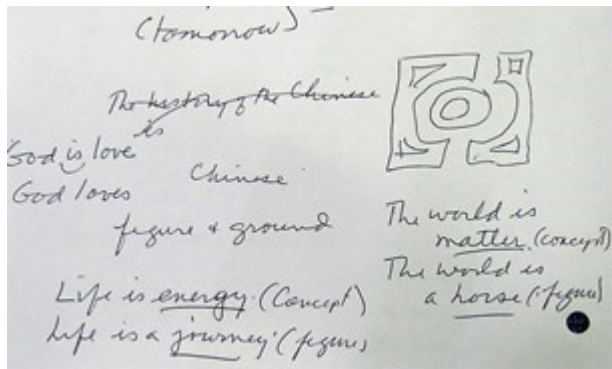 (tomorrow)
The history of the Chinese
is
God is love
God loves
Chinese
figure & ground
Life is energy. (Concept)
Life is a journey. (figure)
The world is
matter. (concept)
The world is
a horse (figure)